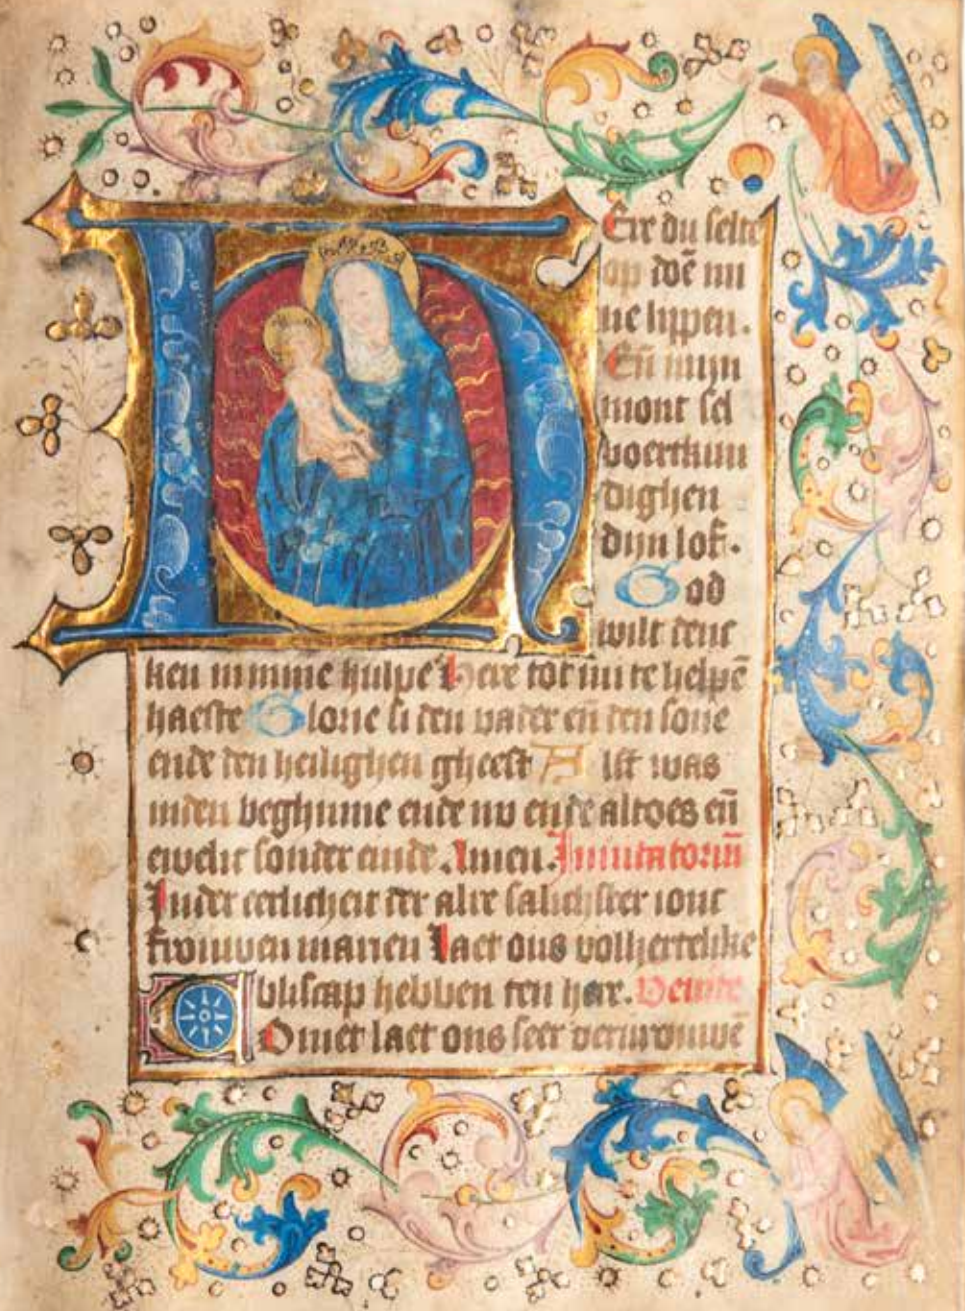 HEre du selte
op doē mi
ne lippen.
Eñ mijn
mont sel
voertkun
dighen
dijn lof.
God
wilt denc
ken in mine hulpe here tot mi te helpē
haeste Glorie si den vader eñ den sone
ende den heilighen gheest Alst was
inden beghinne ende nv ende altoes eñ
ewelic sonder einde. Amen. Inuitatoriū
Inder eerlicheit der alre salichster ionc
frouwen marien laet ons volhertelike
bliscap hebben ten here. Venite
Comet laet ons seer vervrouwē